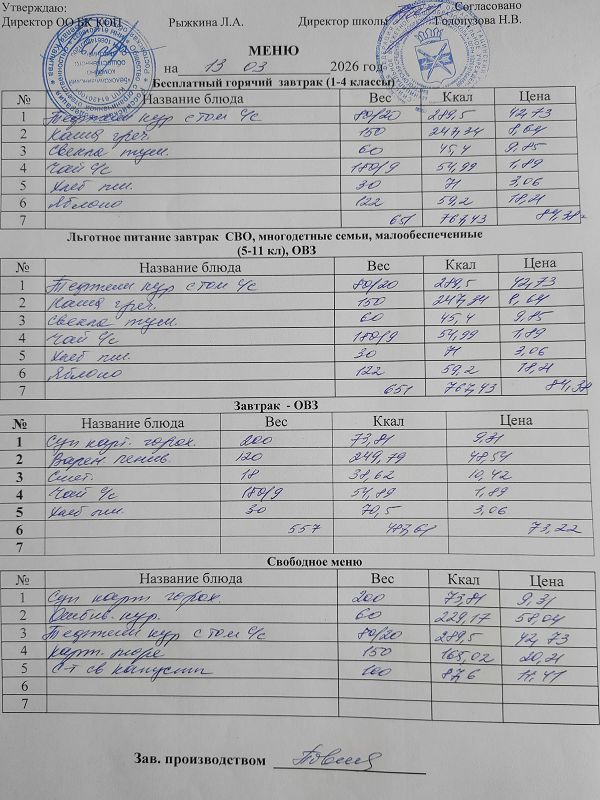 Утверждаю: Согласовано
Директор ООО БК КОП Рыжкина Л.А. Директор школы Годонузова Н.В.
МЕНЮ
на 13 03 2026 год
Бесплатный горячий завтрак (1-4 классы)
№ Название блюда Вес Ккал Цена
1 Тефтели кур с том с/с 80/20 289,5 42,73
2 Каша греч. 150 247,34 8,64
3 Свекла туш. 60 45,4 9,85
4 Чай с/с 180/9 54,99 1,89
5 Хлеб пш. 30 71 3,06
6 Яблоко 122 59,2 18,21
7 651 767,43 84,38
Льготное питание завтрак СВО, многодетные семьи, малообеспеченные
(5-11 кл), ОВЗ
№ Название блюда Вес Ккал Цена
1 Тефтели кур с том с/с 80/20 289,5 42,73
2 Каша греч. 150 247,34 8,64
3 Свекла туш. 60 45,4 9,85
4 Чай с/с 180/9 54,99 1,89
5 Хлеб пш. 30 71 3,06
6 Яблоко 122 59,2 18,21
7 651 767,43 84,38
Завтрак - ОВЗ
№ Название блюда Вес Ккал Цена
1 Суп карт. горох. 200 73,81 9,31
2 Варен. ленив. 120 249,79 48,54
3 Смет. 18 38,62 10,42
4 Чай с/с 180/9 54,89 1,89
5 Хлеб пш. 30 70,5 3,06
6 557 487,61 73,22
7
Свободное меню
№ Название блюда Вес Ккал Цена
1 Суп карт горох. 200 73,81 9,31
2 Отбив. кур. 60 229,17 58,04
3 Тефтели кур с том с/с 80/20 289,5 42,73
4 Карт. пюре 150 168,02 20,21
5 С-т св капусты 100 87,6 11,41
6
7
Зав. производством